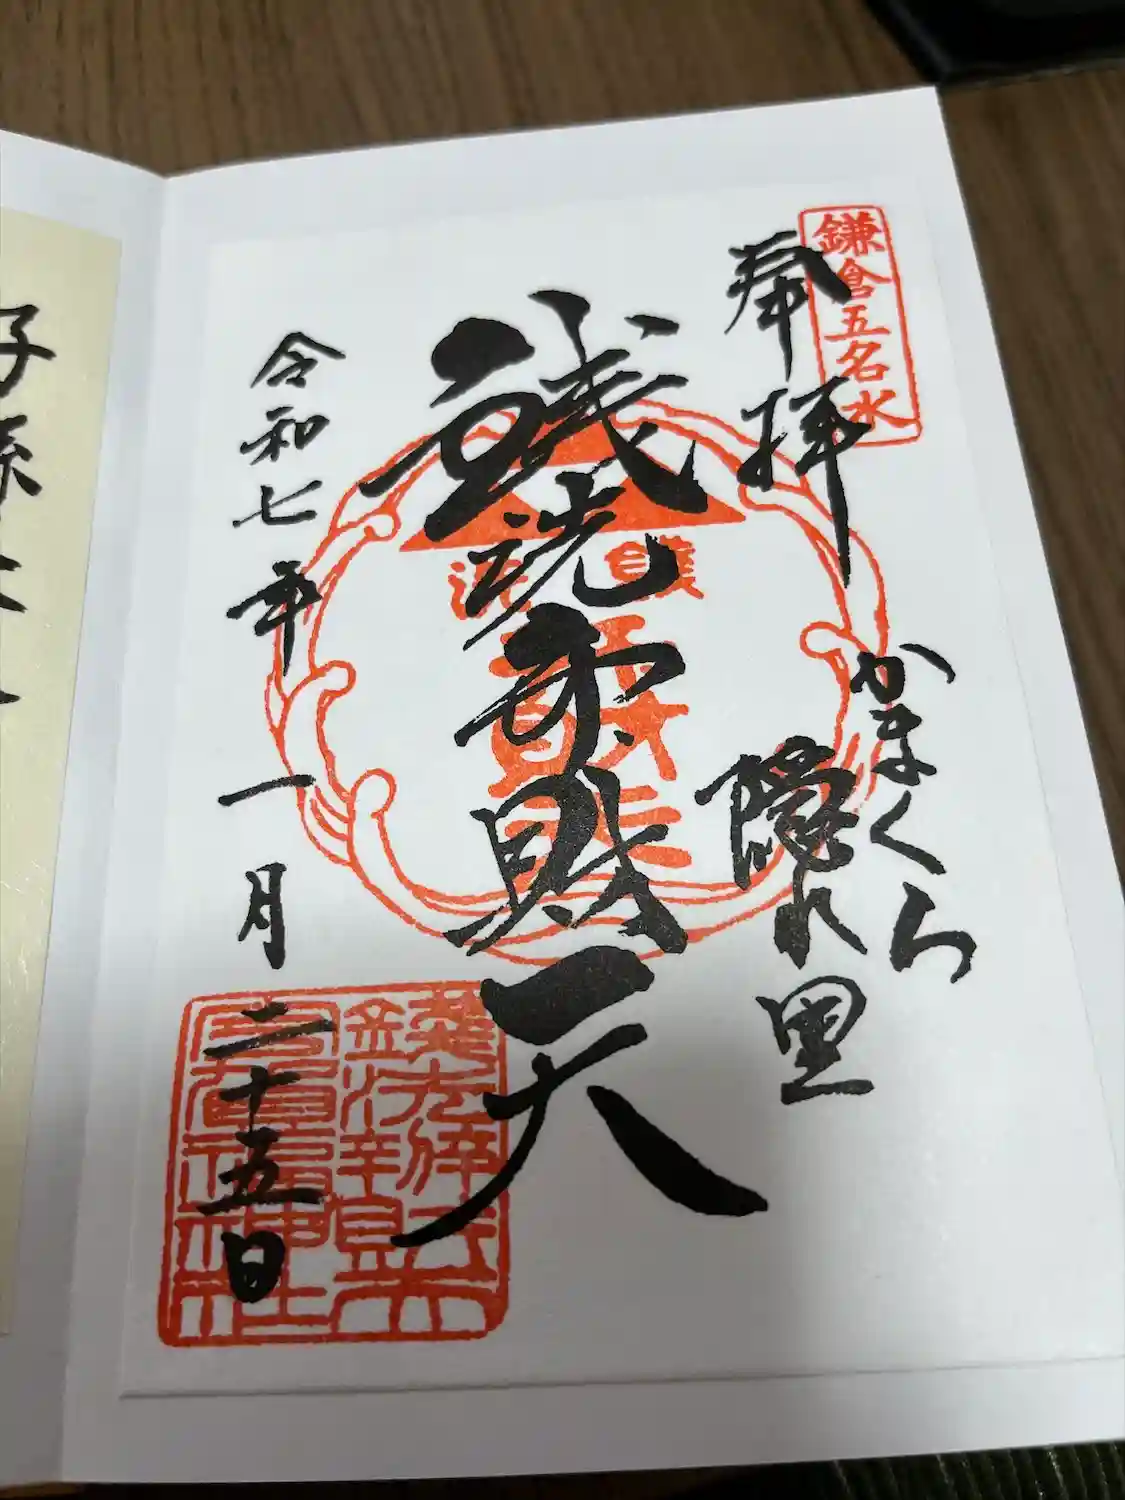 鎌倉五名水
奉拝
かまくら
隠れ里
銭洗弁財天
令和七年一月二十五日
銭洗辨財天
宇賀福神社